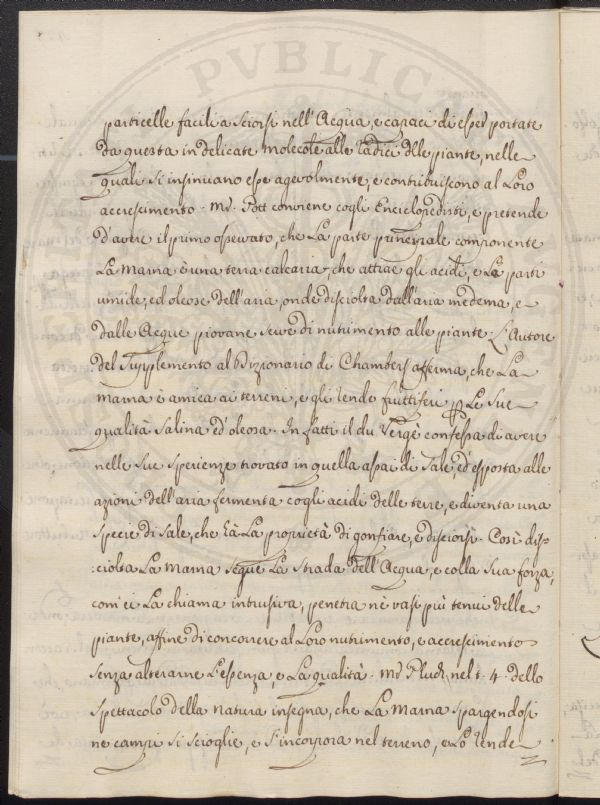 particelle facili a sciorsi nell'Acqua, e capaci di esser portate
da questa in delicate molecole alle radici delle piante, nelle
quali si insinuano esse agevolmente, e contribuiscono al Loro
accrescimento. Mr. Pott conviene cogli Enciclopedisti, e pretende
d'avere il primo osservato, che La parte principale componente
La Marna è una terra calcaria, che attrae gli acidi, e Le parti
umide, ed oleose dell'aria, onde disciolta dall'aria medema, e
dalle Acque piovane serve di nutrimento alle piante. L'Autore
del Supplemento al Dizionario di Chambers afferma, che La
marna è amica ai terreni, e gli rende fruttiferi per Le Sue
qualità Salina ed oleosa. In fatti il du Vergè confessa di avere
nelle Sue Sperienze trovato in quella assai di Sale, ed esposta alle
azioni dell'aria fermenta cogli acidi delle terre, e diventa una
Specie di Sale, che hà La proprietà di gonfiare, e disciorsi. Così diso
:ciolta La Marna Segue La Strada dell'Acqua, e colla Sua forza,
com'ei La chiama intrusiva, penetra ne vasi più tenui delle
piante, affine di concorrere al Loro nutrimento, e accrescimento
Senza alterarne L'essenza, e La qualità. Mr Pluch nel t. 4. dello
Spettacolo della natura insegna, che La Marna Spargendosi
ne campi Si Scioglie, e S'incorpora nel terreno, e Lo rende